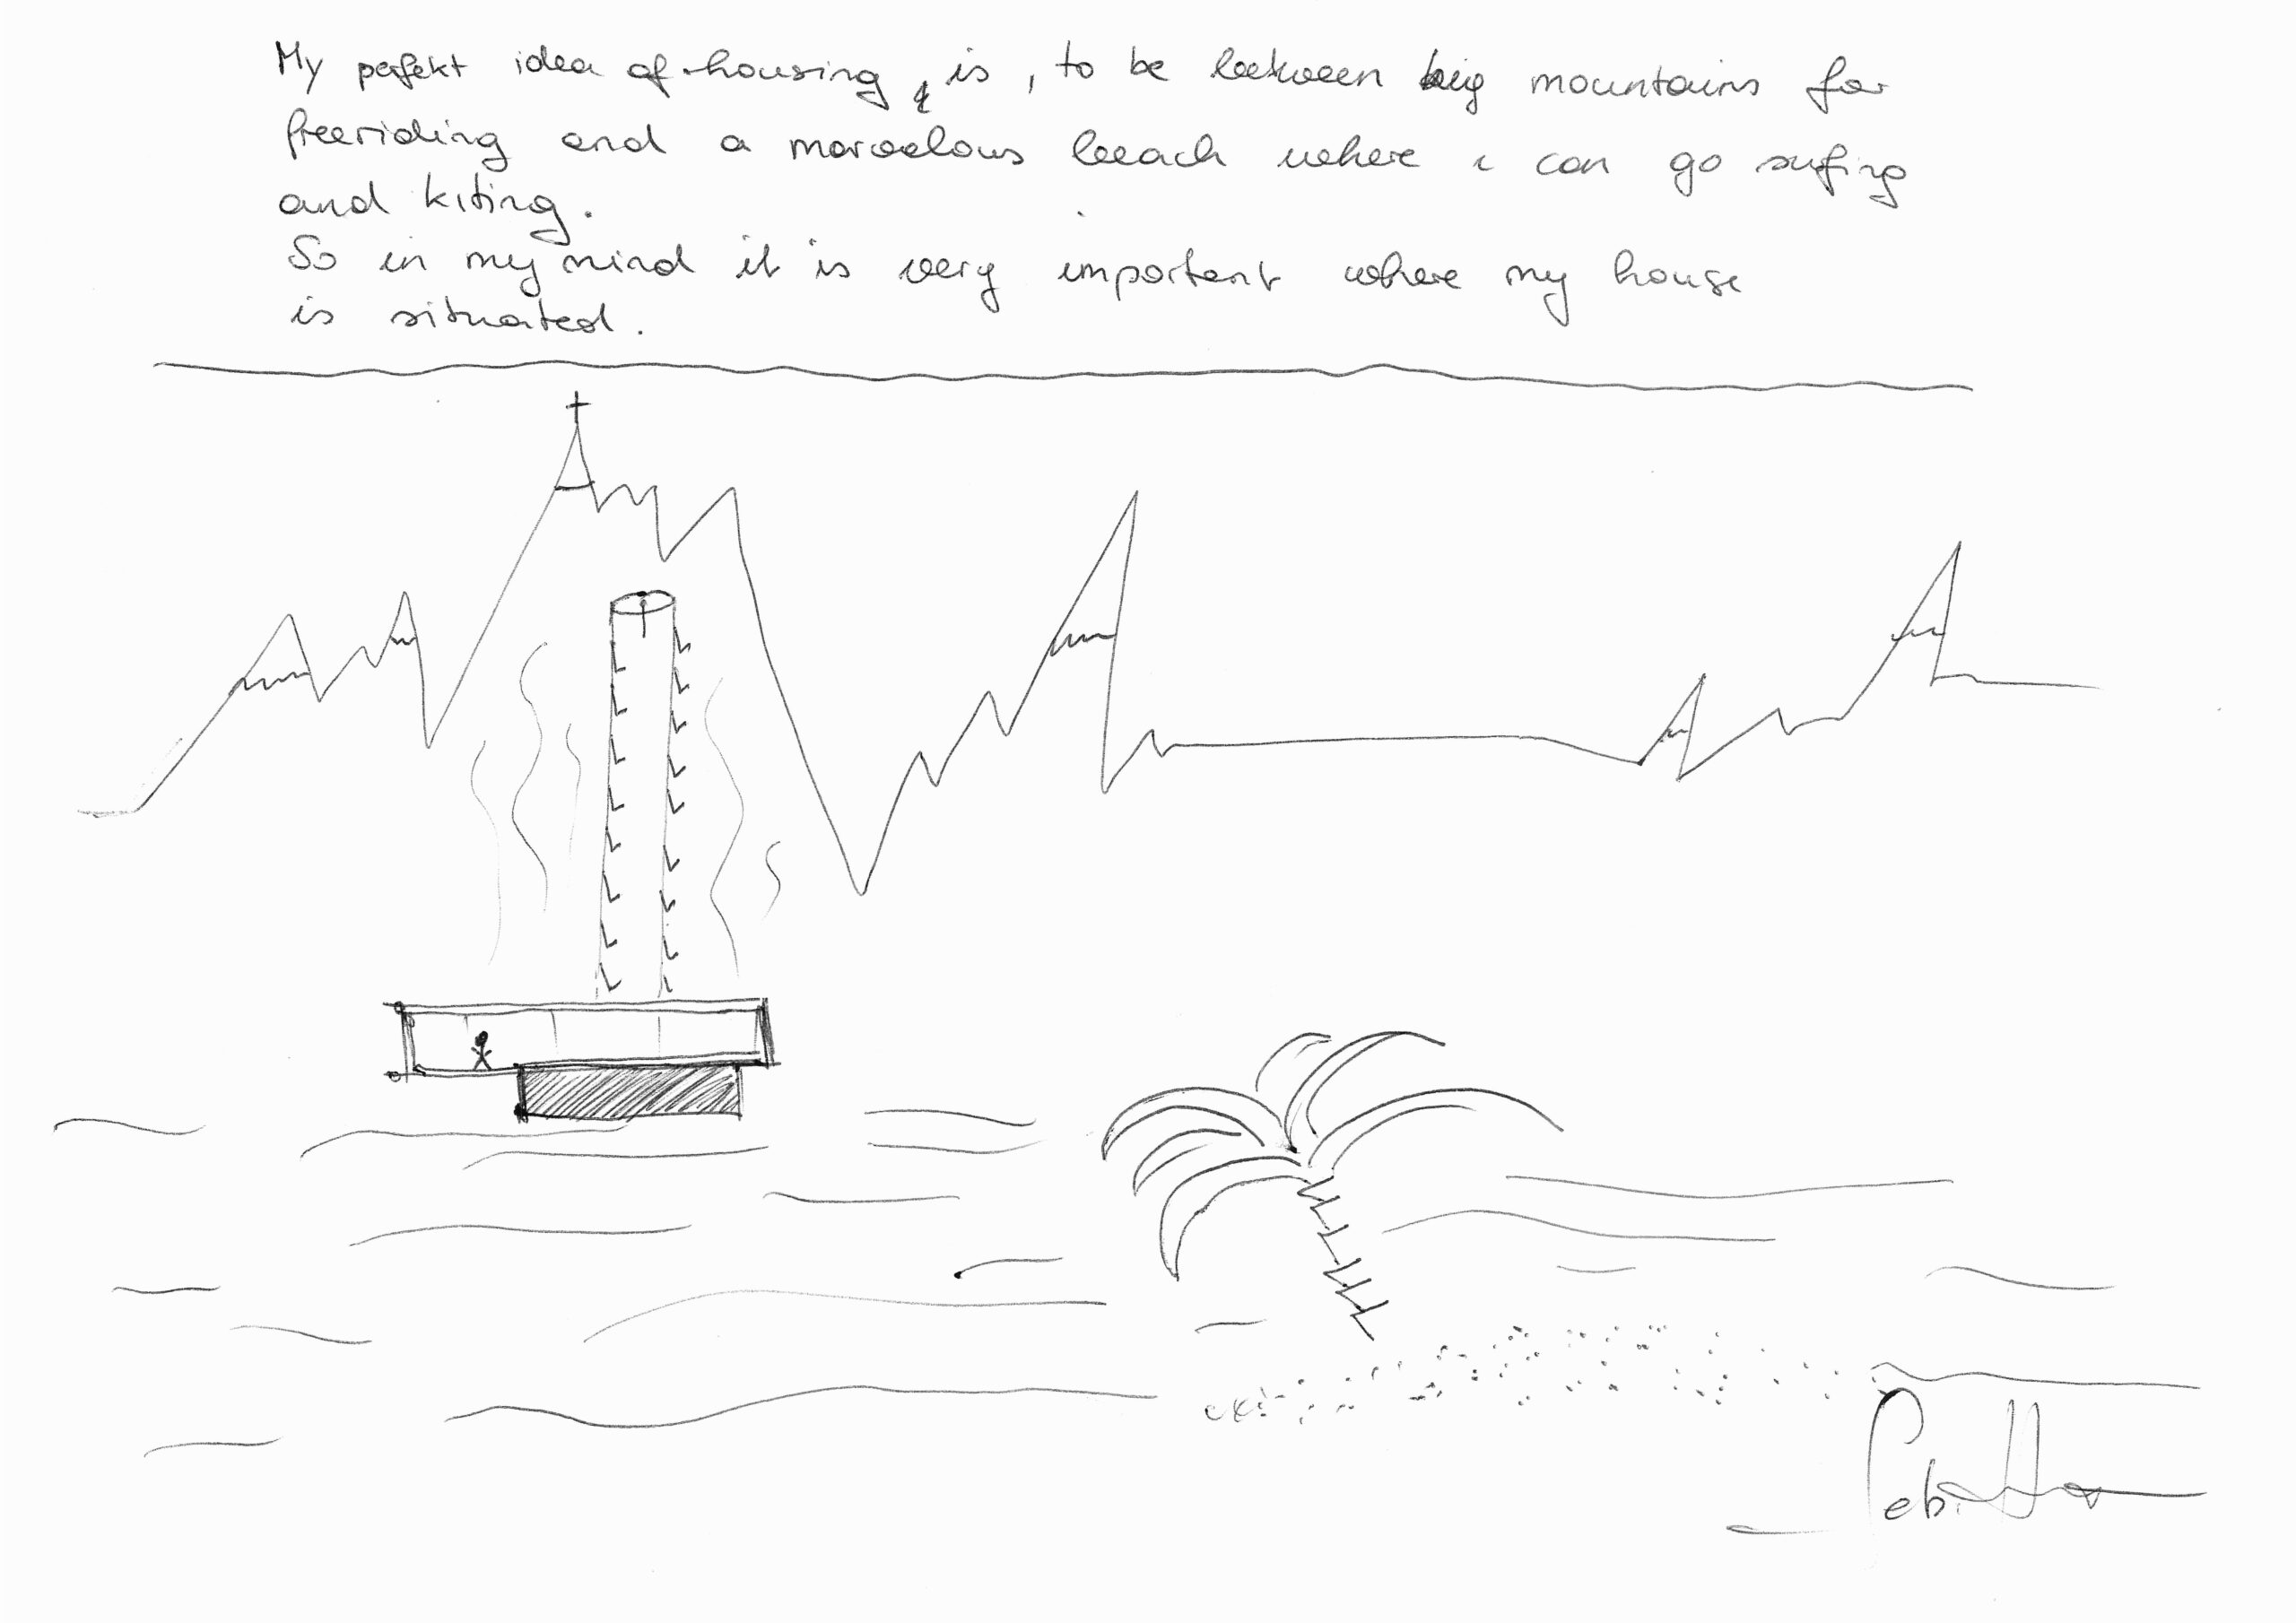 My perfekt idea of housing, is, to be between big mountains for
freeriding and a marvelous beach where i can go surfing
and kiting.
So in my mind it is very important where my house
is situated.